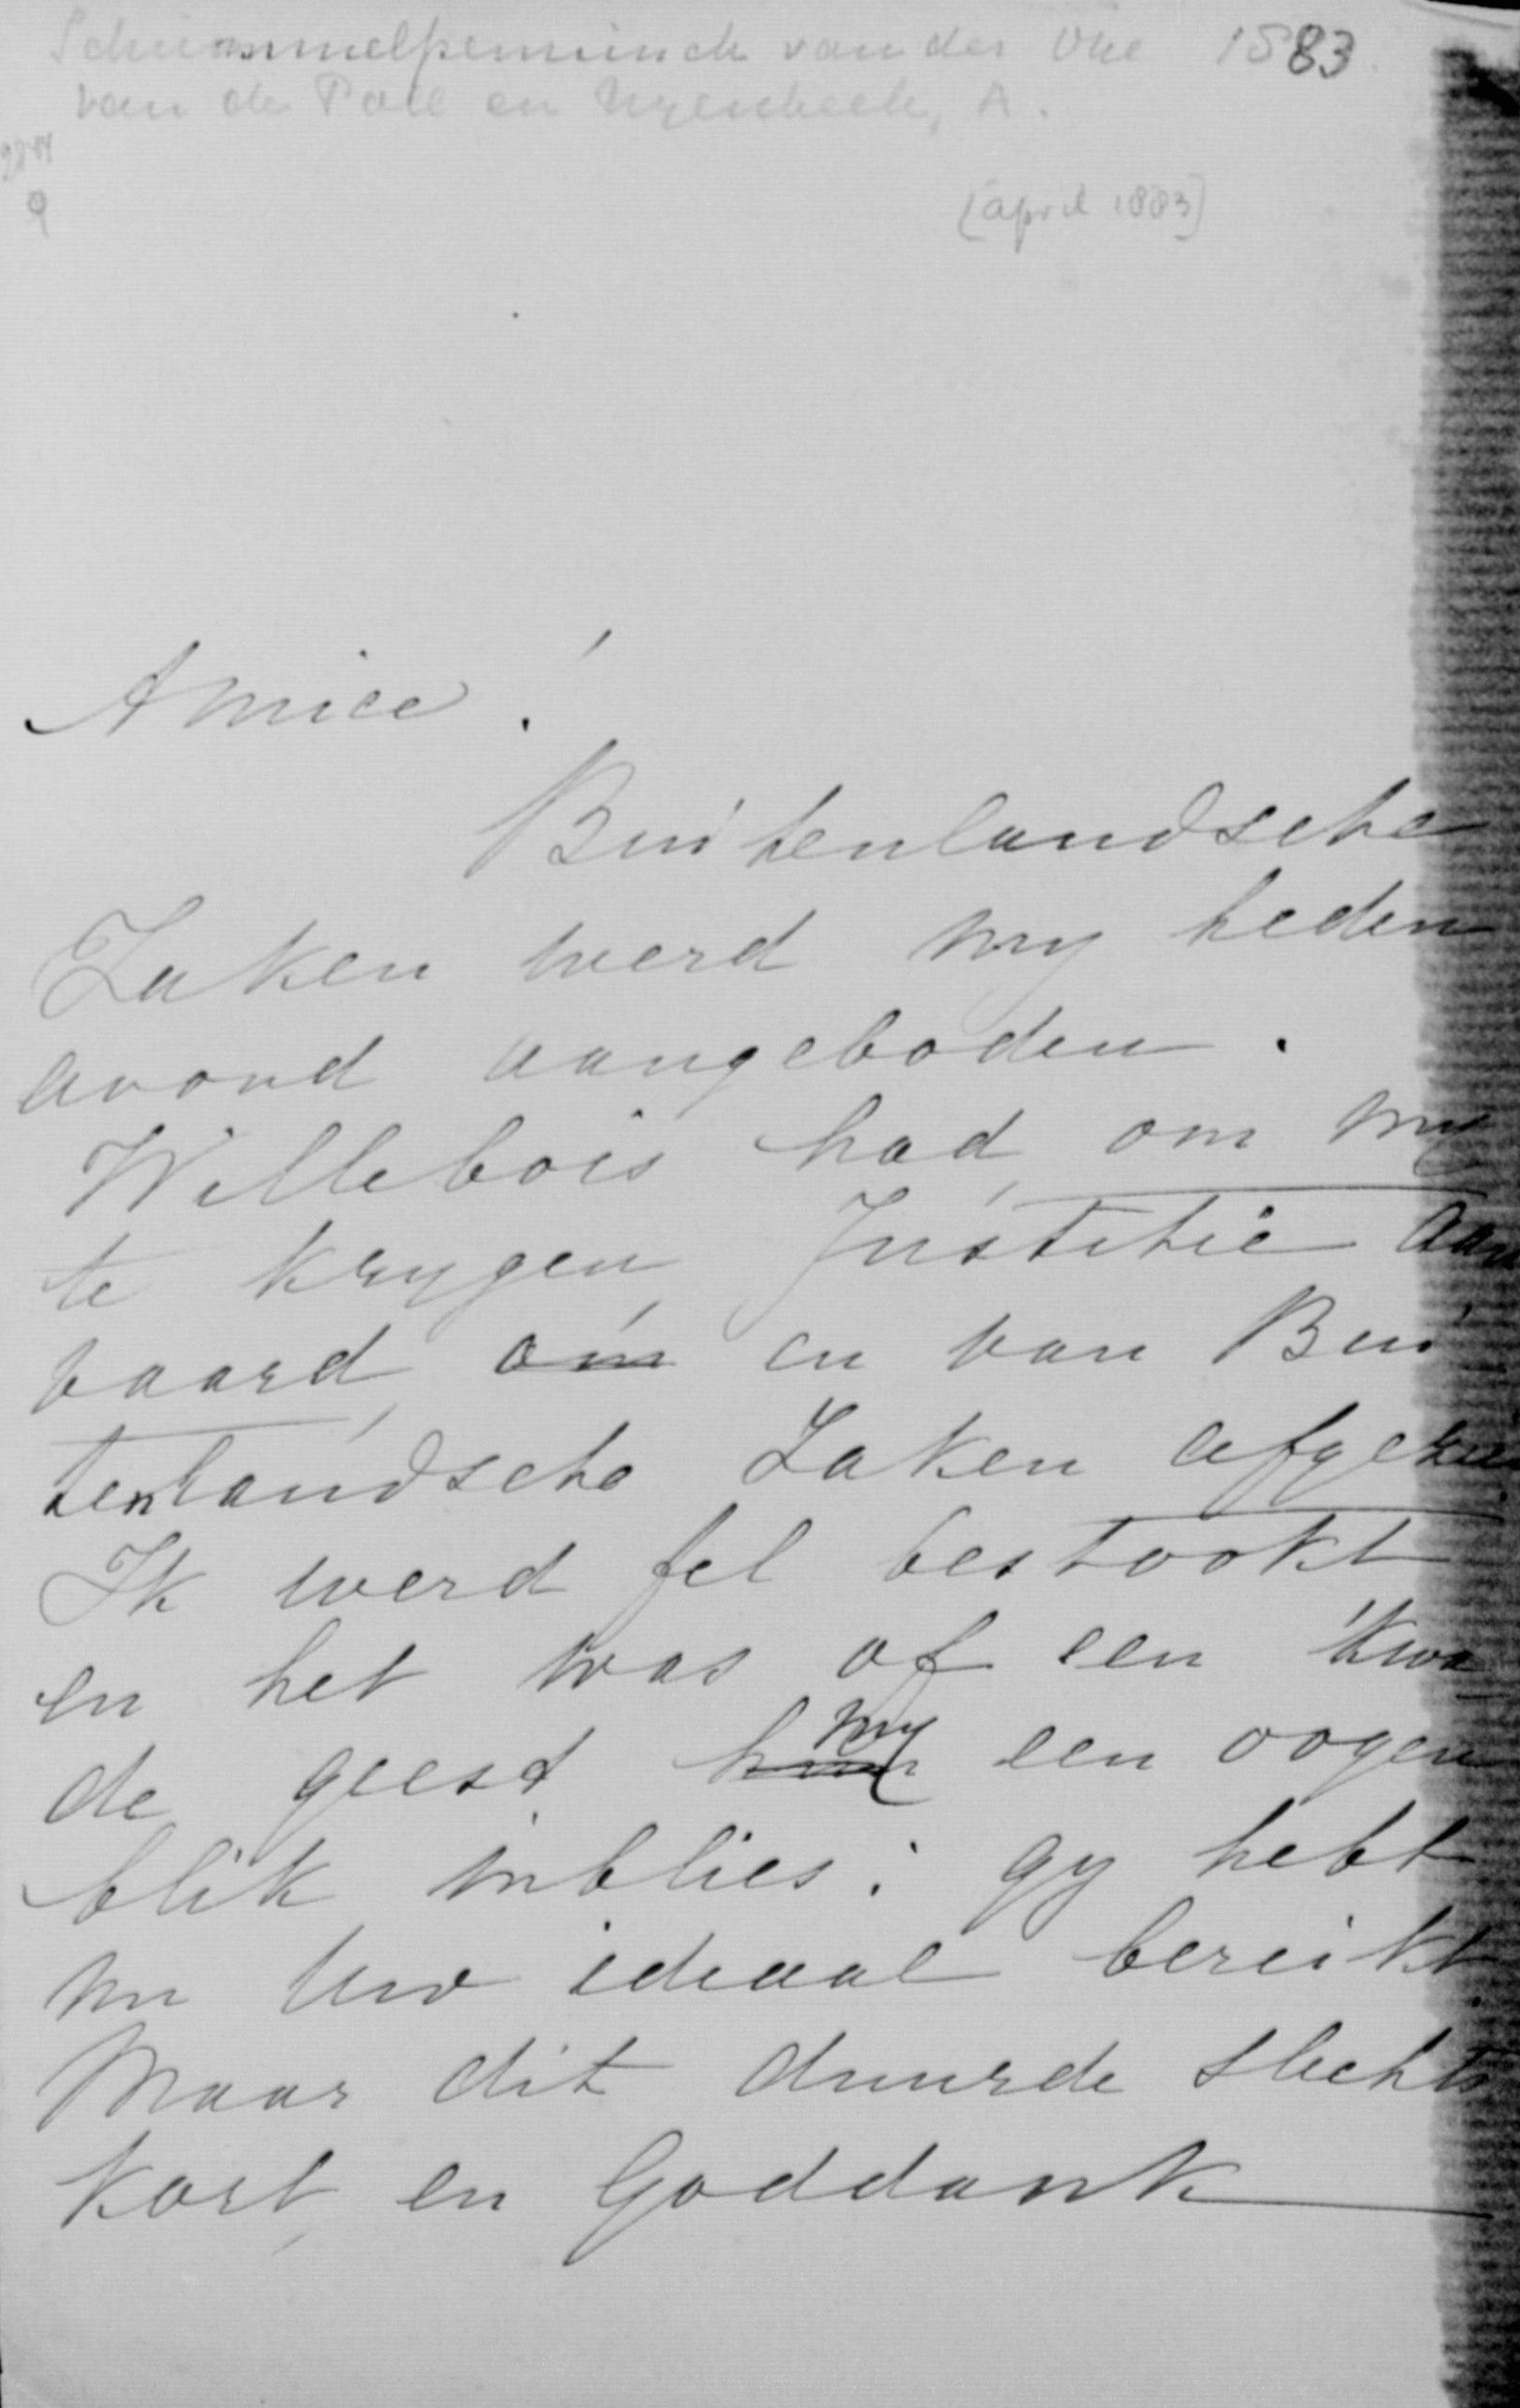 Schimmelpenninck van der Oije 1883
van de Poll en Nyenbeek, A.
9
[april 1883]
Amice!
Buitenlandsche
Zaken werd my heden
avond aangeboden.
Willebois had, om my
te krygen, Justitie aan
vaard, om en van Bui
tenlandsche Zaken afgezien.
Ik werd fel bestookt
en het was of een kwa
de geest hem my een oogen
blik inblies: gy hebt
nu Uw ideaal bereikt.
Maar dit duurde slechts
kort, en Goddank